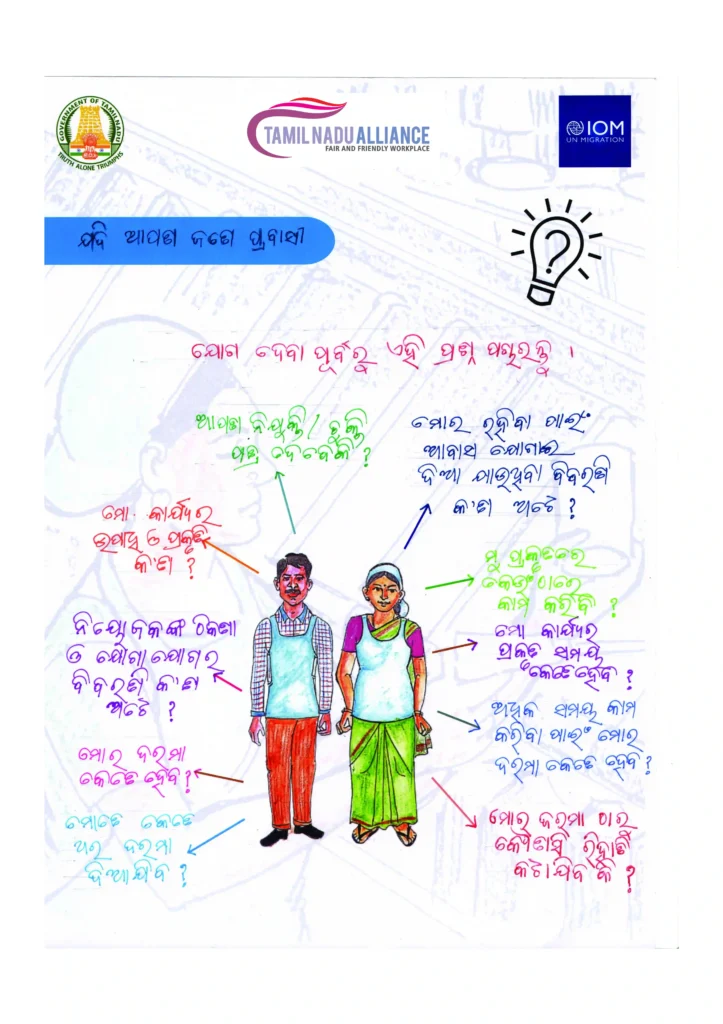 GOVERNMENT OF TAMILNADU
TRUTH ALONE TRIUMPHS
TAMIL NADU ALLIANCE
FAIR AND FRIENDLY WORKPLACE
IOM
UN MIGRATION
ଯଦି ଆପଣ ଜଣେ ପ୍ରବାସୀ
ଯୋଗ ଦେବା ପୂର୍ବରୁ ଏହି ପ୍ରଶ୍ନ ପଚାରନ୍ତୁ ।
ଆପଣ ନିଯୁକ୍ତି/ ଚୁକ୍ତି
ପତ୍ର ଦେବେକି ?
ମୋର ରହିବା ପାଇଁ
ଆବାସ ଯୋଗାଇ
ଦିଆ ଯାଉଥିବା ବିବରଣୀ
କ'ଣ ଅଟେ ?
ମୋ କାର୍ଯ୍ୟର
ଓ ପ୍ରକୃତି
କ'ଣ ?
ମୁ ପ୍ରକୃତରେ
କେଉଁଠାରେ
କାମ କରିବି ?
ନିଯୋଜକଙ୍କ ଠିକଣା
ଓ ଯୋଗାଯୋଗର
ବିବରଣୀ କ'ଣ
ଅଟେ ?
ମୋ କାର୍ଯ୍ୟର
ପ୍ରକୃତ ସମୟ
କେତେହେବ ?
ଅଧିକ ସମୟ କାମ
କରିବା ପାଇଁ ମୋର
ଦରମା କେତେ ହେବ ?
ମୋର ଦରମା
କେତେ ହେବ ?
ମୋତେ କେତେ
ଥର ଦରମା
ଦିଆଯିବ ?
ମୋର ଦରମା ଠାରୁ
କୌଣସି ରିହାତି
କଟାଯିବ କି ?